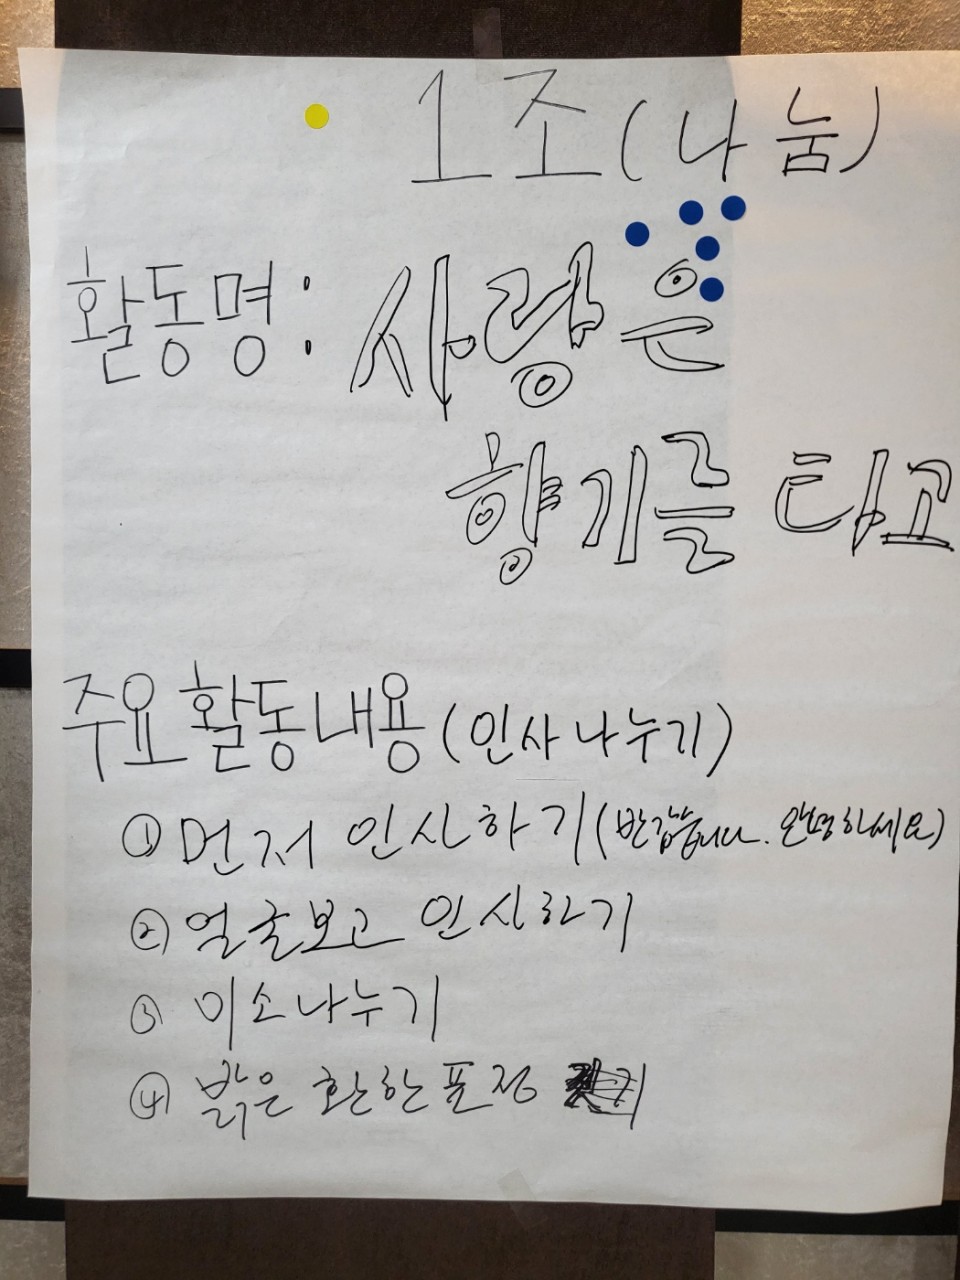 1조(나눔)
활동명: 사랑은
향기를 타고
주요활동내용(인사나누기)
① 먼저 인사하기(반갑습니다. 안녕하세요)
② 얼굴보고 인사하기
③ 미소나누기
④ 밝은 환한표정